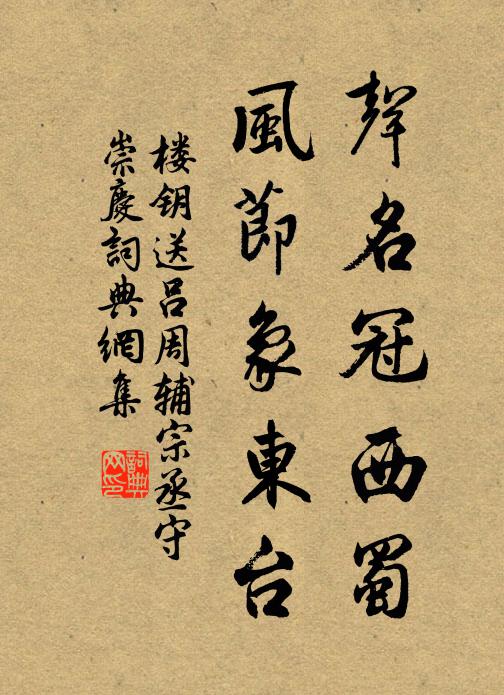 聲名冠西蜀
風節象東台
楼钥送吕周辅宗丞守
崇慶詞典網集
詞典网印